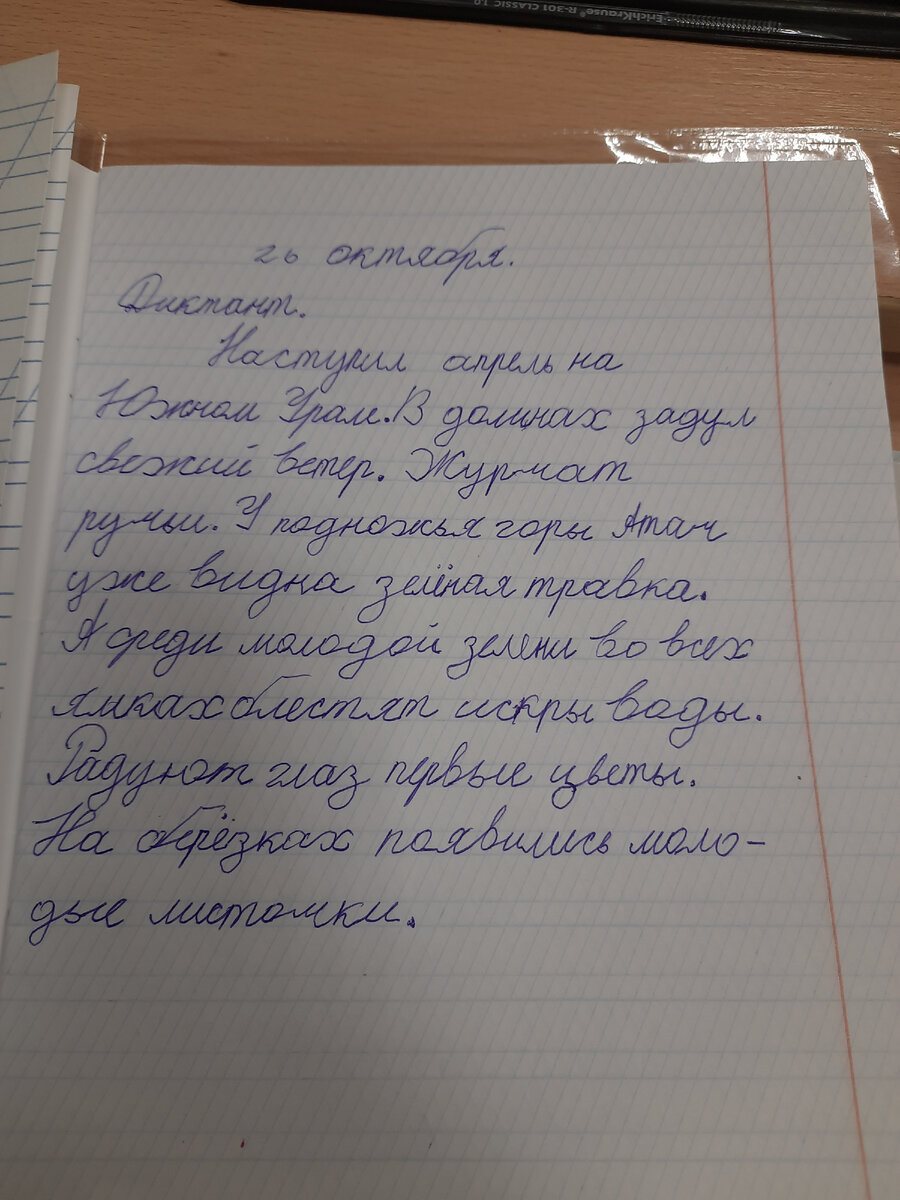 ErichKrause® R-301 CLASSIC 1.0
26 октября.
Диктант.
Наступил апрель на
Южном Урале. В долинах задул
свежий ветер. Журчат
ручьи. У подножья горы Атач
уже видна зелёная травка.
А среди молодой зелени во всех
ямках блестят искры воды.
Радуют глаз первые цветы.
На берёзках появились моло-
дые листочки.